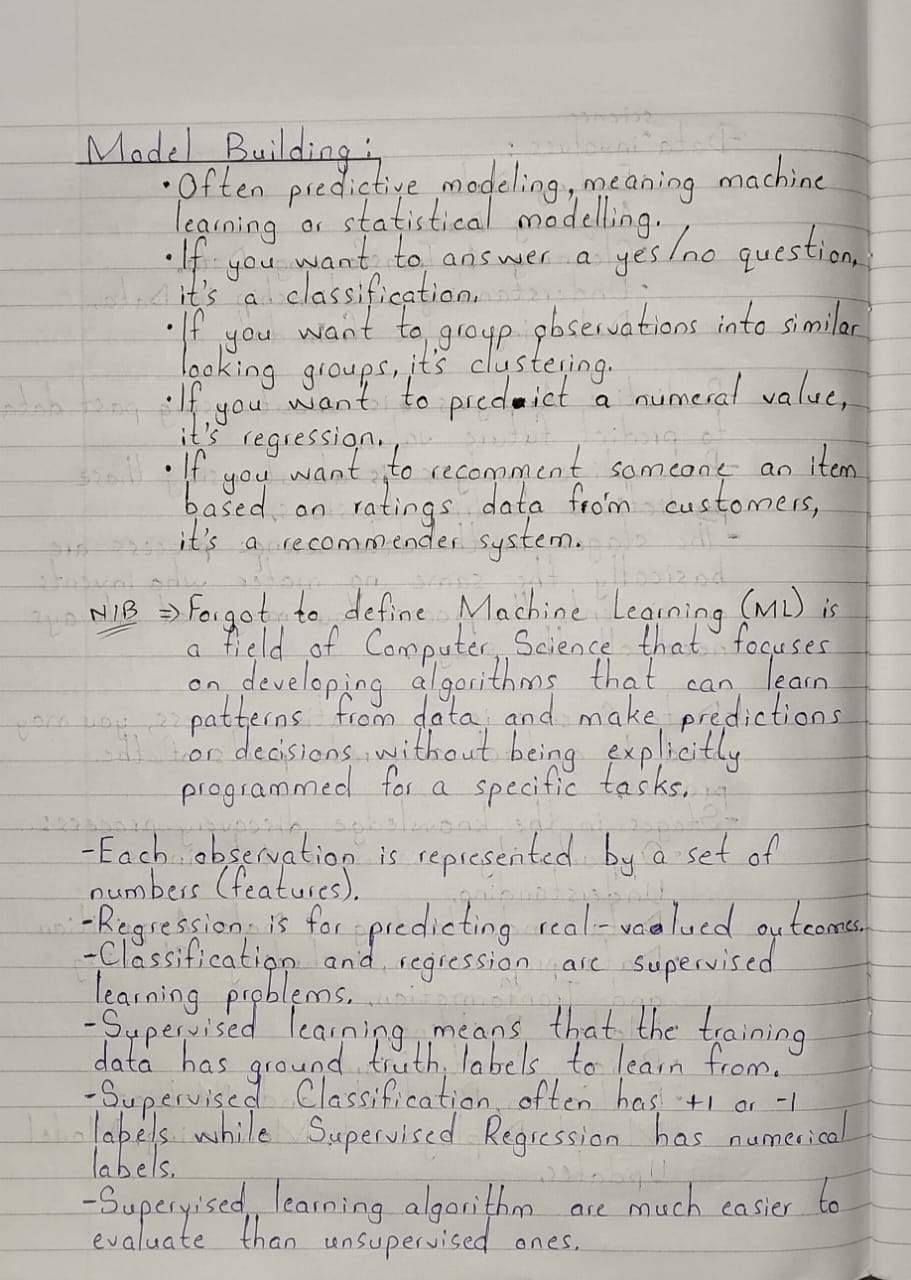 Model Building:
• Often predictive modeling, meaning machine
learning or statistical modelling.
• If you want to answer a yes/no question,
it's a classification.
• If you want to group observations into similar
looking groups, it's clustering.
• If you want to predict a numeral value,
it's regression.
• If you want to recomment someone an item
based on ratings data from customers,
it's a recommender system.
N/B ⇒ Forgot to define Machine Learning (ML) is
a field of Computer Science that focuses
on developing algorithms that can learn
patterns from data and make predictions
or decisions without being explicitly
programmed for a specific tasks.
- Each observation is represented by a set of
numbers (features).
- Regression is for predicting real-vaalued outcomes.
- Classification and regression are supervised
learning problems.
- Supervised learning means that the training
data has ground truth labels to learn from.
- Supervised Classification often has +1 or -1
labels while Supervised Regression has numerical
labels.
- Supervised learning algorithm are much easier to
evaluate than unsupervised ones.